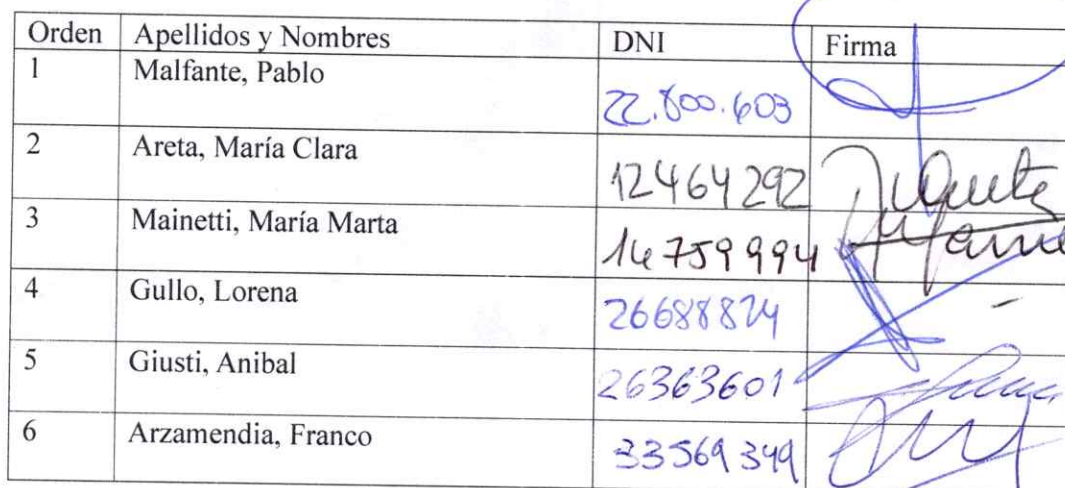 Orden Apellidos y Nombres DNI Firma
1 Malfante, Pablo 22.800.603
2 Areta, María Clara 12464292
3 Mainetti, María Marta 14759994
4 Gullo, Lorena 26688824
5 Giusti, Anibal 26363601
6 Arzamendia, Franco 33569349